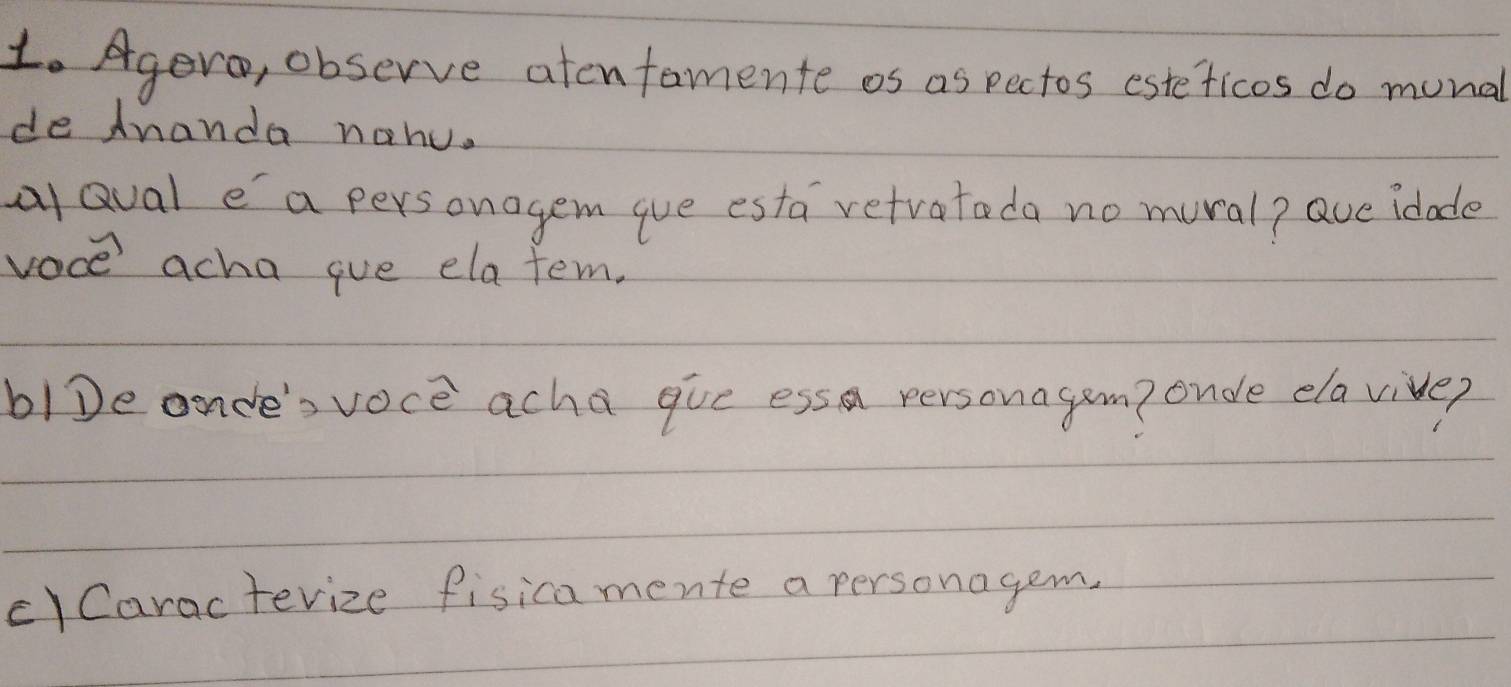 1. Agora, observe atentamente os aspectos estéticos do mural
de Ananda nahu.
a) Qual é a personagem que está retratada no mural? Que idade
você acha que ela tem.
b) De onde, você acha que essa personagem? onde ela vive?
c) Caracterize fisicamente a personagem.